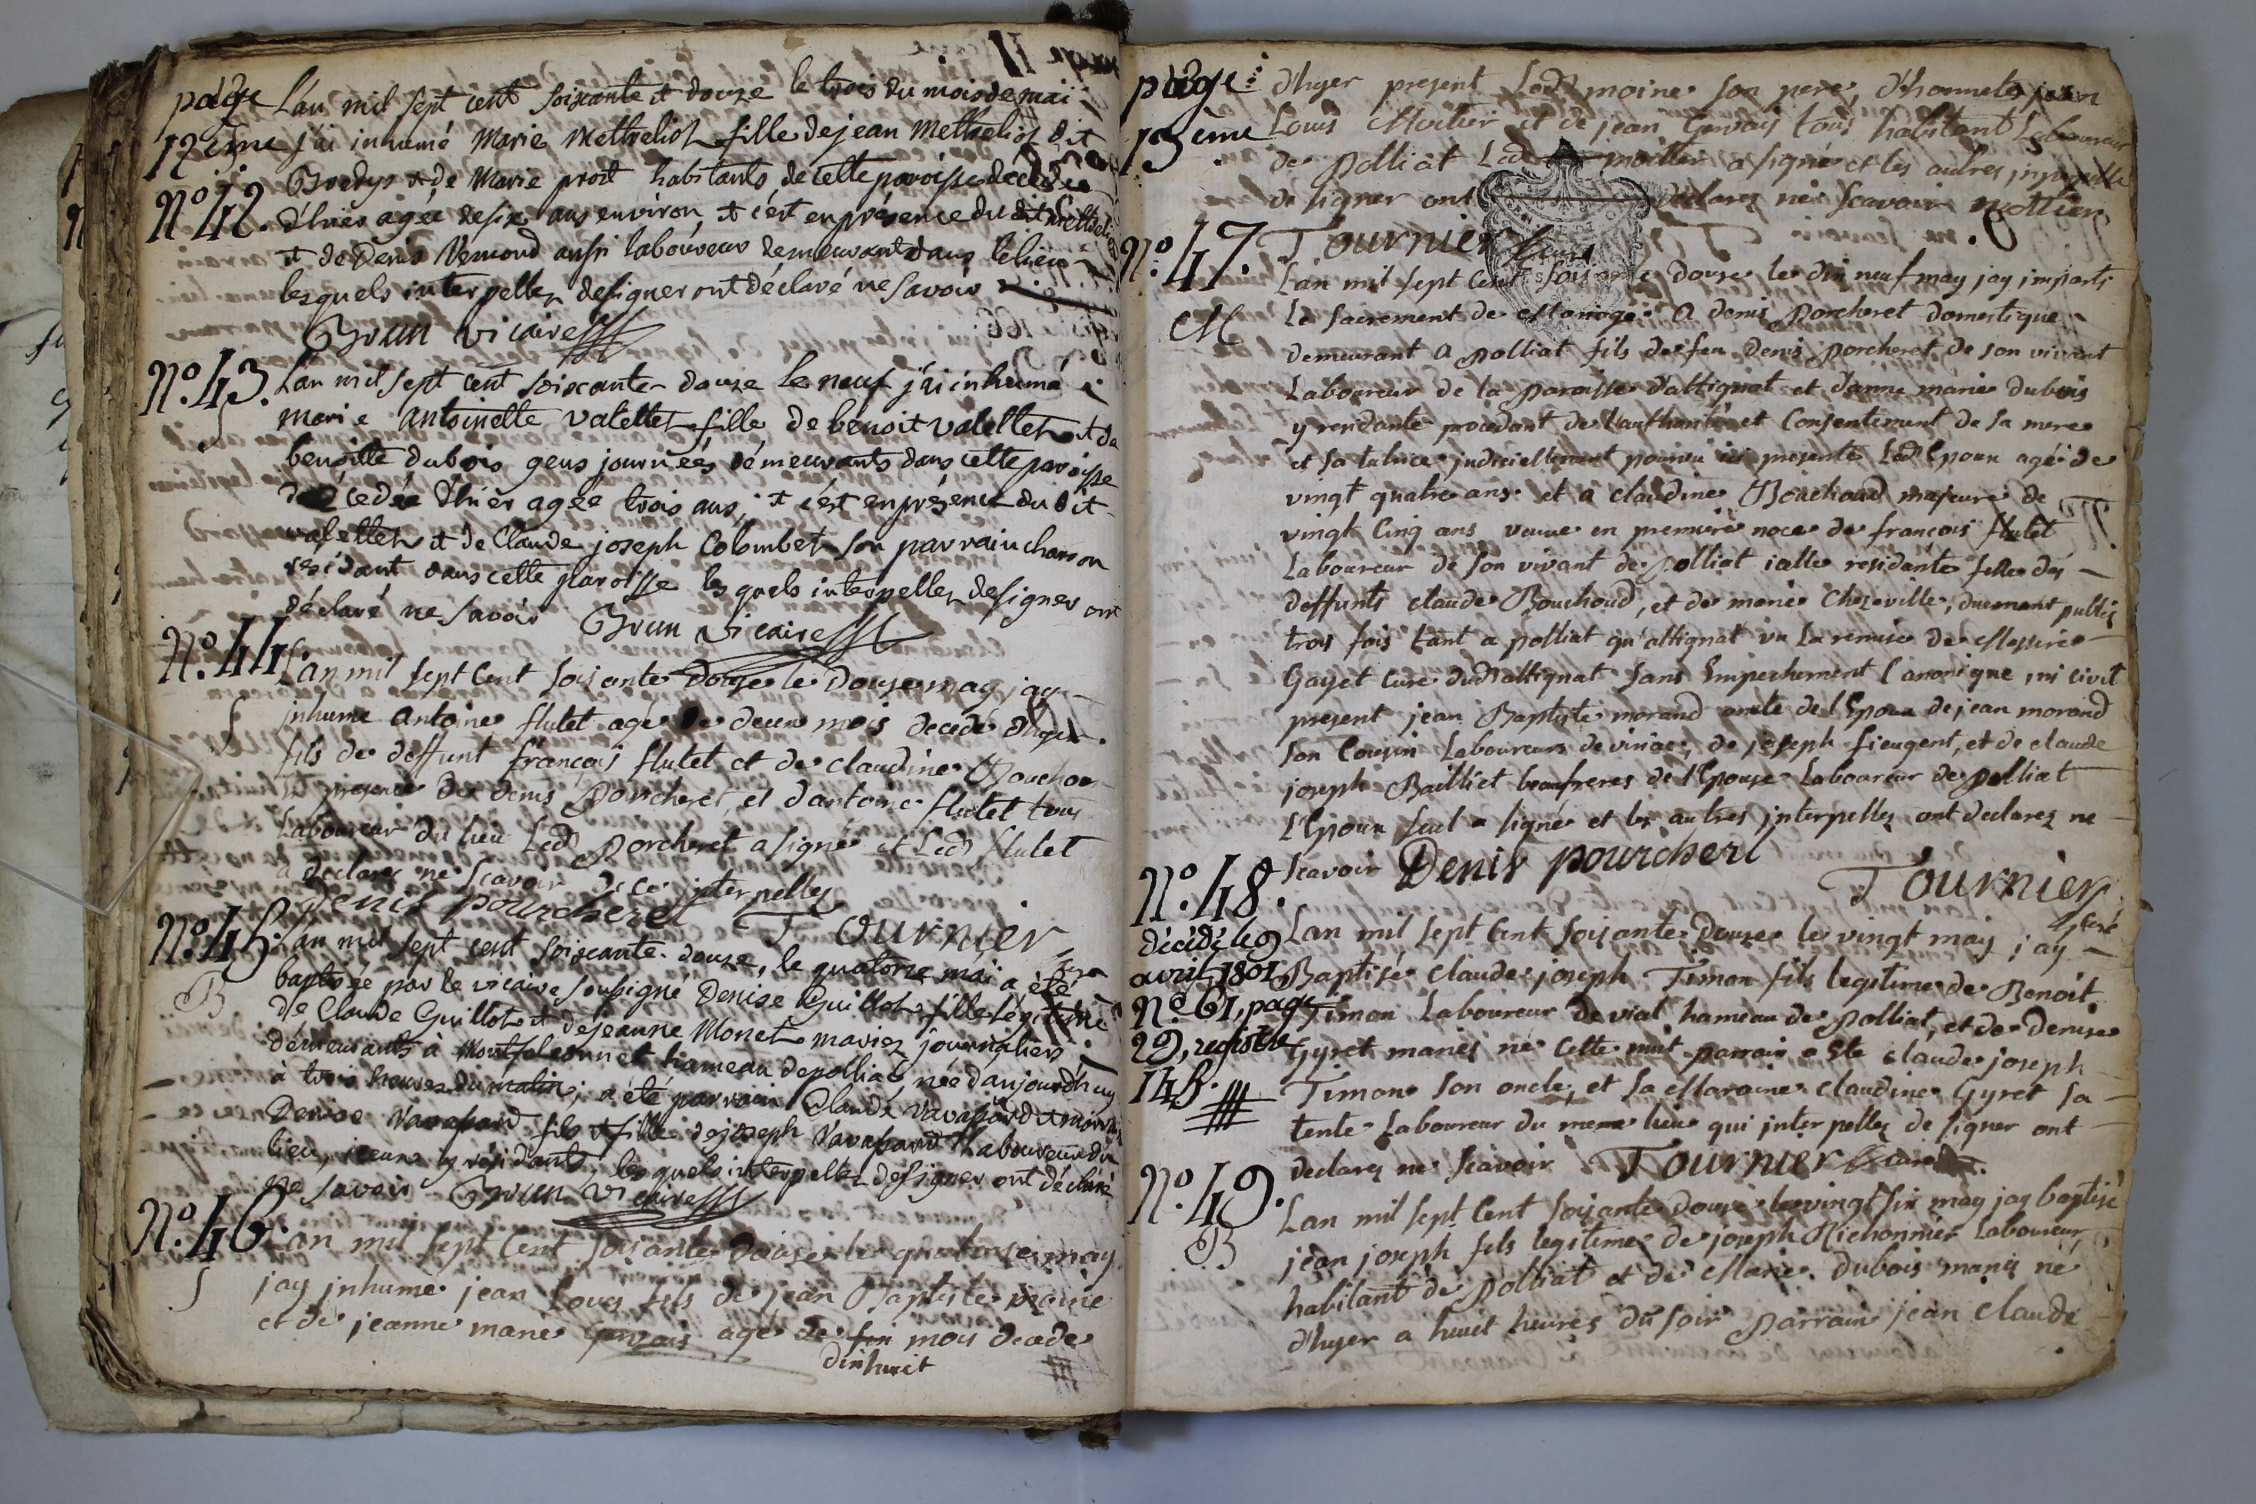 page
12ème
N.º 42.
L'an mil sept cent soixante et douze le trois du mois de mai
j'ai inhumé Marie Methreliot fille de jean Methreliot dit
Bredys et de Marie prost habitants de cette paroisse décédée
d'hier agée de six ans environ, et c'est en présence du dit
et de Denis Vemond aussi laboureur demeurant dans le lieu
lesquels interpellez de signer ont déclaré ne savoir
Brun vicaire
N.º 43.
S
L'an mil sept cent soixante douze le neuf j'ai inhumé
marie antoinette valettet fille de benoit valettet et de
benoitte dubois gens journées démeurants dans cette paroisse
décedée d'hier agée trois ans, et c'est en présence du dit
valettet et de Claude joseph Colombet son parrain
residant dans cette paroisse lesquels interpellez de signer ont
déclaré ne savoir Brun vicaire
N.º 44.
S
L'an mil sept cent soisante douze le douze may jay
jnhumé antoine flutet agé de deux mois decede d'hyer
fils de deffunt françois flutet et de claudine Bouchou
en presence de denis Porcheret, et d'antoine flutet tous
Laboureur du lieu Led Porcheret a signé et Led flutet
a declarez ne scavoir de ce jnterpellez
Denis pourcheret Tournier
N.º 45.
B
L'an mil sept cent soixante-douze, le quatorze mai a été
baptisée par le vicaire soussigné Denise Guillot fille légitime
de Claude Guillot et de jeanne Monet mariez journaliers
démeurants à Montfalconnet hameau de polliat née d'aujourd'huy
à trois heures du matin; a été parrain Claude Vavapard et marraine
Denise Vavapard fils et fille de joseph Vavapard laboureur du
lieu, jeunes y résidants, lesquels interpellez de signer ont déclaré
ne savoir Brun vicaire
N.º 46.
S
L'an mil sept cent soisante douze le quatorze may
jay jnhumé jean Louis fils de jean Baptiste moine
et de jeanne marie Gervais agé de six mois decede
dixhuit
page
13ème
d'hyer present Led moine son pere, d'honnete jean
Louis Mottier et de jean Gervais tous habitant Laboureur
de Polliat Led mottier a signé et les autres jnterpellé
de signer ont declarez ne Scavoir mottier
Tournier Curé
N.º 47.
M
L'an mil sept Cent soisante douze le dix neuf may jay jmparti
Le Sacrement de Mariage a denis Porcheret domestique
demeurant a polliat fils de feu denis porcheret de son vivent
Laboureur de la Paroisse d'attignat et d'anne marie dubois
y residante procedant de l'authorité et Consentement de sa mere
et sa tutrice judiciellement pourvu ici presente Led Epoux agé de
vingt quatre ans et a claudine Bouchoud majeure de
vingt Cinq ans veuve en premiere noce de françois flutet
Laboureur de son vivant de Polliat jcelle residante fille des
deffunts claude Bouchoud, et de marie Chezeville, duement publiez
trois fois tant a polliat qu'attignat vu La remise de Messire
Gayet Curé dud attignat sans Empechement Canonique ni civil
present jean Baptiste morand oncle de l'Epoux de jean morand
son Cousin Laboureurs de viriac, de joseph fieugent, et de claude
joseph Bailliet beaufreres de l'Epouse Laboureur de Polliat
L'Epoux seul a signé et les autres jnterpellez ont declarez ne
Scavoir Denis pourcheret
Tournier
Curé
N.º 48.
décédé le 9
avril 1801
N.º 61, page
29, registre
148.
L'an mil sept Cent soisante douze le vingt may jay
Baptisé claude joseph Timon fils legitime de Benoit
Timon Laboureur de vial hameau de Polliat, et de denise
Gyret mariez né cette nuit parrain a Ete claude joseph
Timon son oncle, et sa Maraine claudine Gyret sa
tente Laboureur du meme lieu qui jnterpellez de signer ont
declarez ne Scavoir Tournier Curé
N.º 49.
B
L'an mil sept Cent soisante douze le vingt six may jay baptisé
jean joseph fils legitime de joseph Richonnier Laboureur
habitant de Polliat et de Marie dubois mariez né
d'hyer a huit heures du soir Parrain jean claude